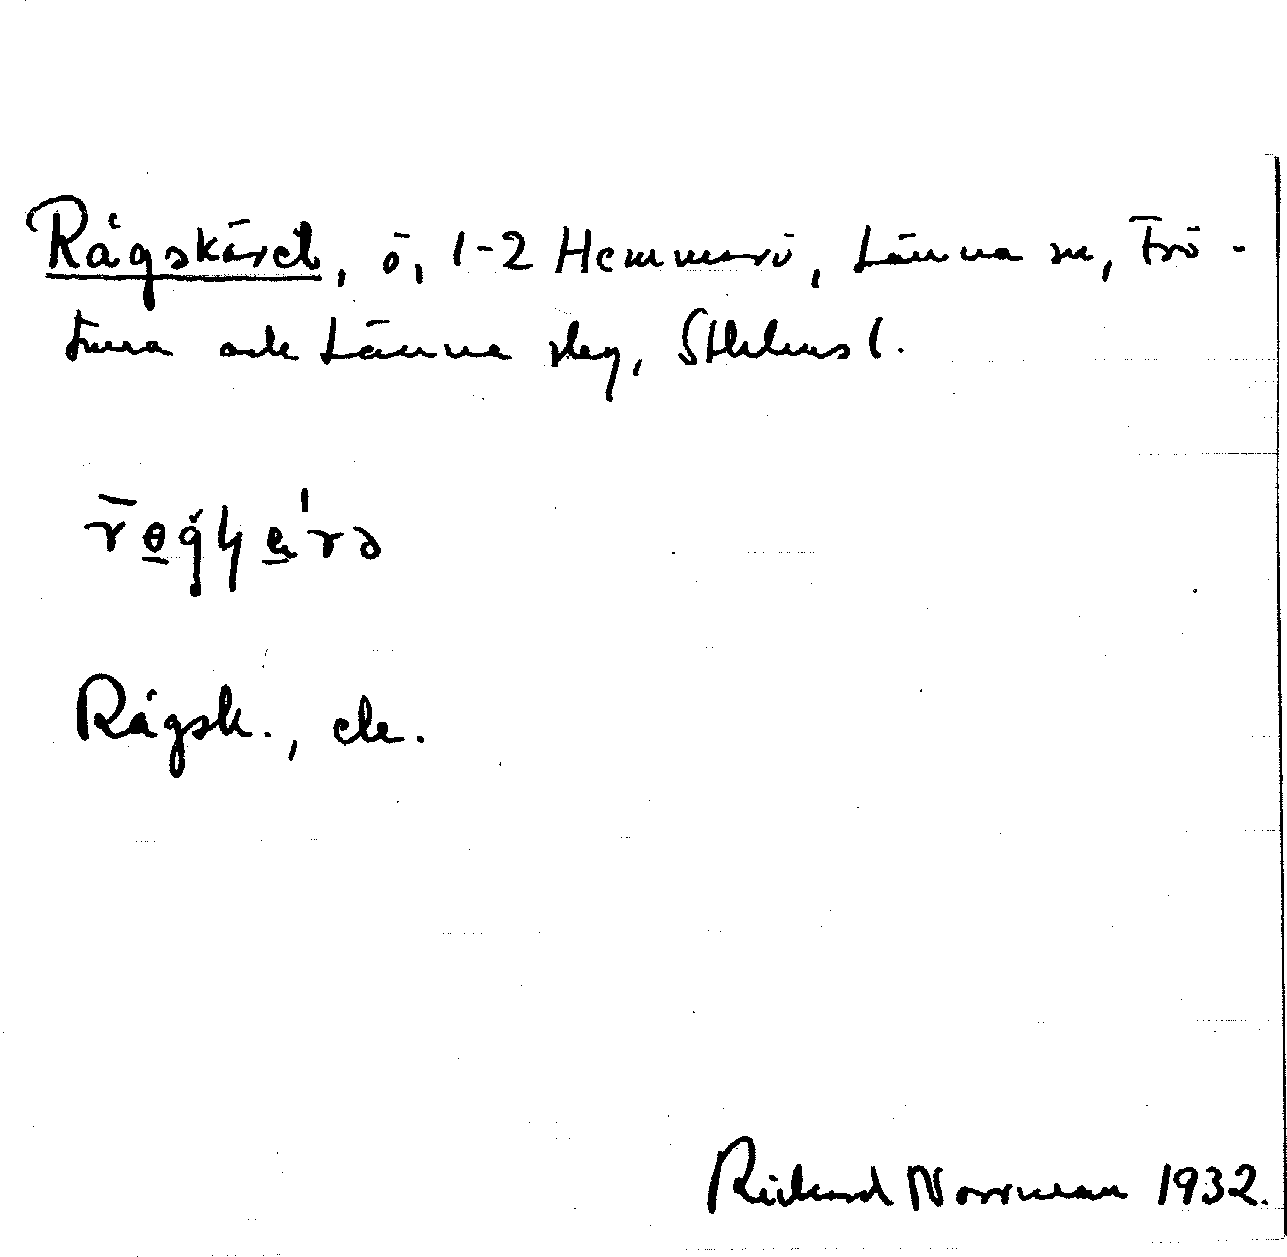 Rågskäret, ö, 1-2 Hemmarö, Länna sn, Frö-
tuna och Länna slag, Sthlms l.
Rågsk., ek.
Rickard Norrman 1932.